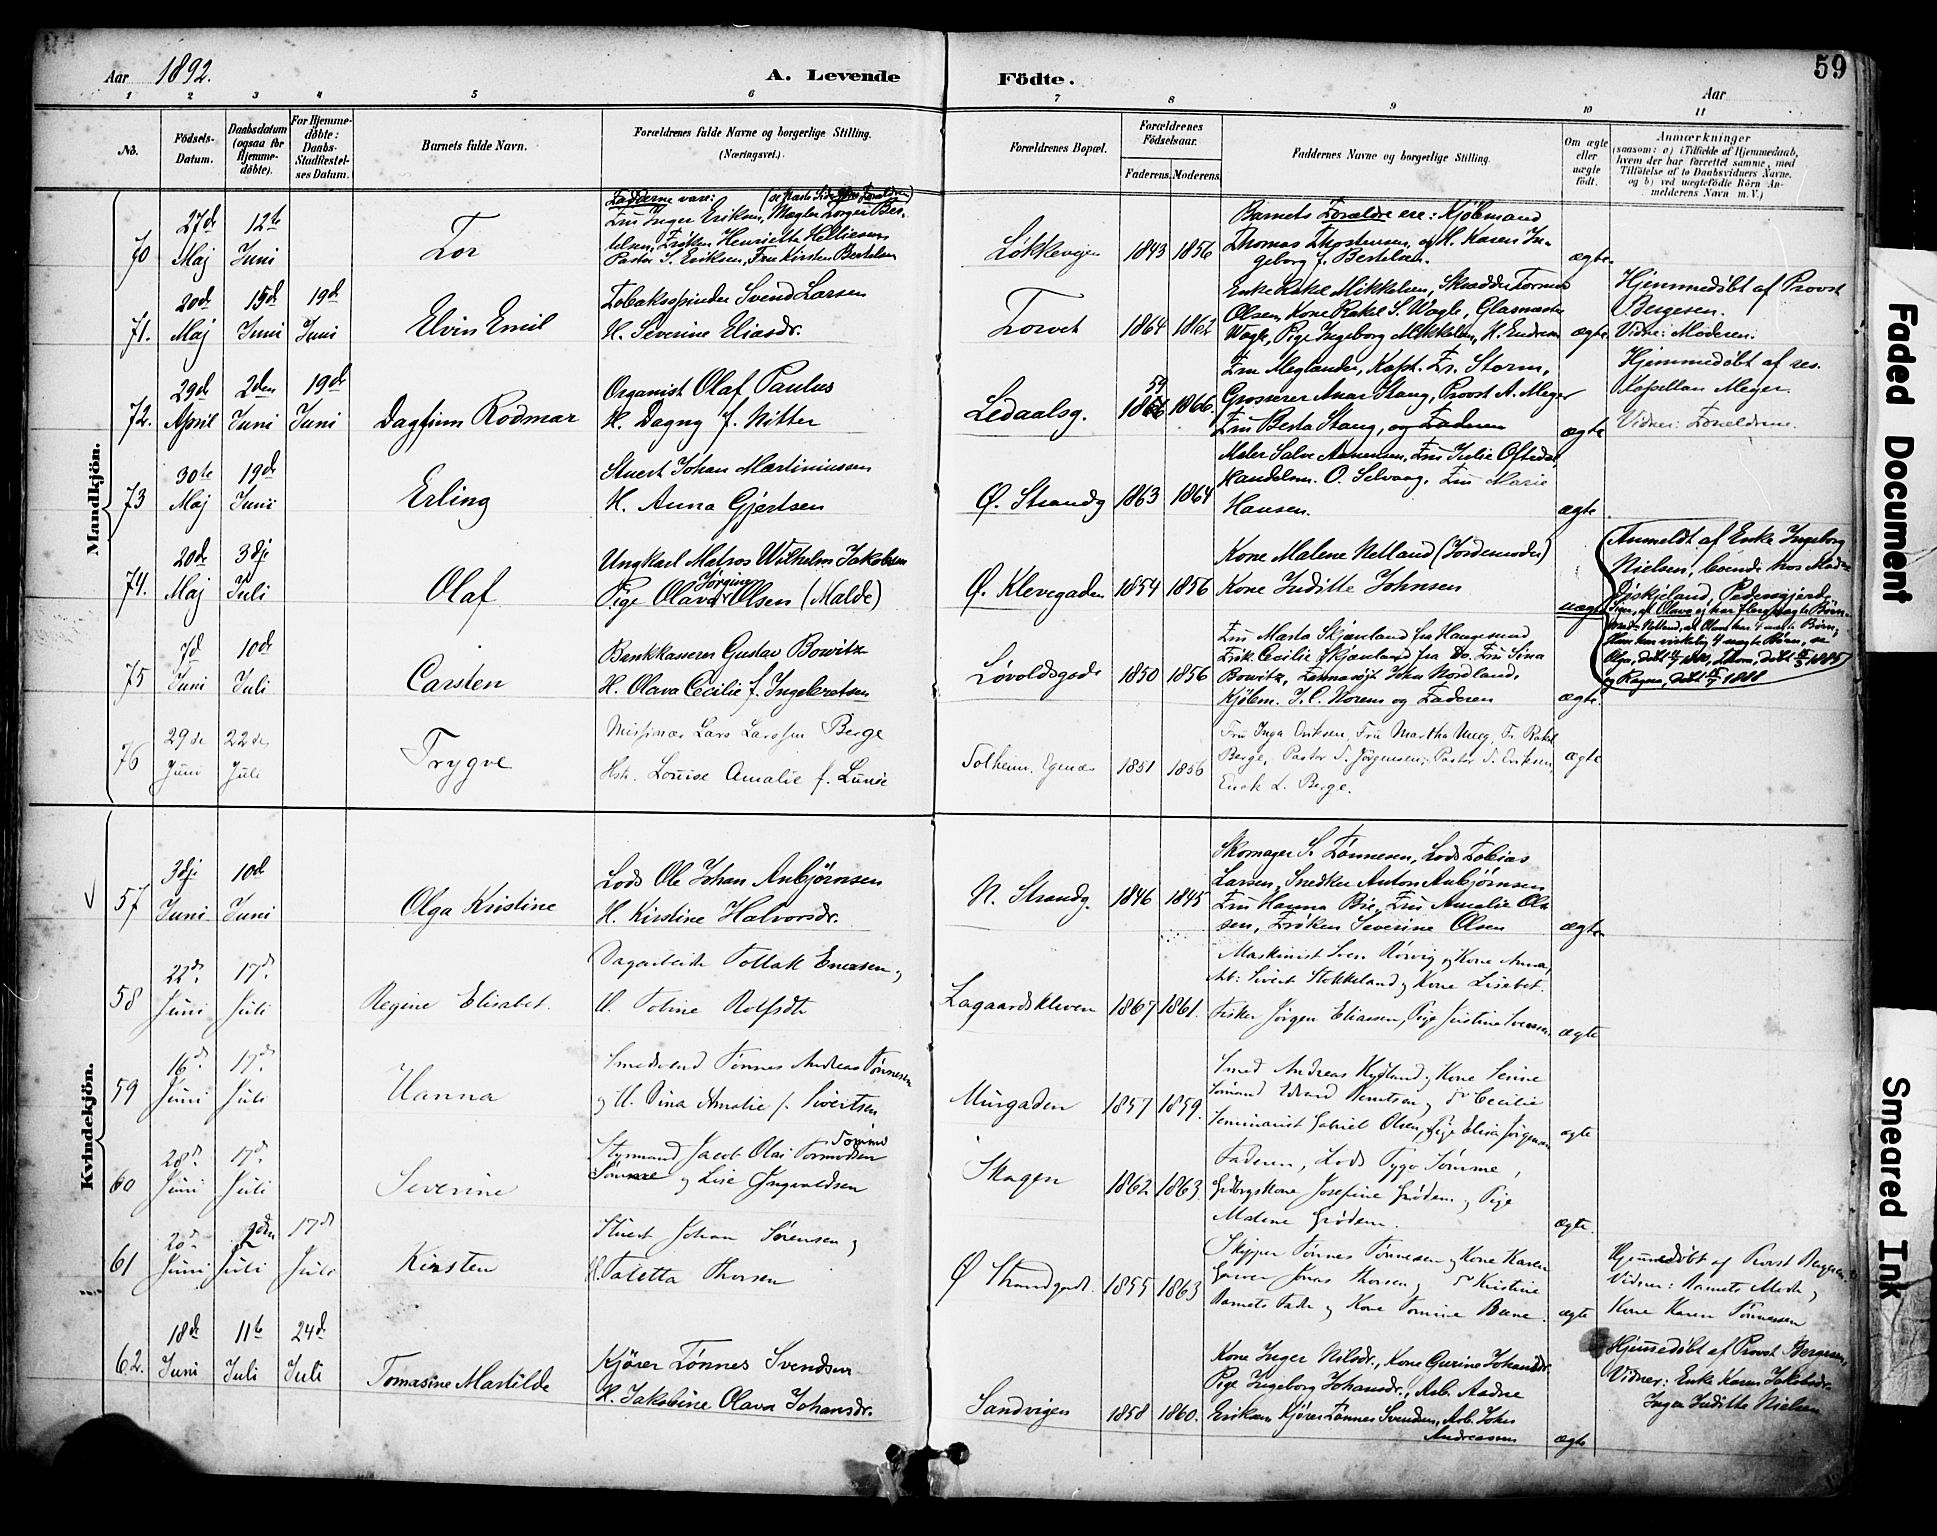 59
Aar 1892.
A. Levende Födte.
Aar
1 2 3 4 5 6 7 8 9 10 11
No.
Födsels-Datum.
Daabsdatum (ogsaa for Hjemmedøbte).
For Hjemmedøbte: Daabs-Stadfæstelses Datum.
Barnets fulde Navn.
Forældrenes fulde Navne og borgerlige Stilling.
(Næringsvei.)
Forældrenes Bopæl.
Forældrenes Födselsaar.
Faderens. Moderens.
Faddernes Navne og borgerlige Stilling.
Om ægte eller uægte født.
Anmærkninger
(saasom: a) i Tilfælde af Hjemmedaab, hvem der har forrettet samme, med Tilføielse af to Daabsvidners Navne, og b) ved uægtefødte Börn Anmelderens Navn m. V.)
Mandkjön.
70 27de Maj 12te Juni
Tor
Fadderne vare:
Fru Inger Eriksen, Mægler Torger Bertelsen, Frøken Henriette
Pastor S. Eriksen, Fru Kirsten Bertelsen
Løkkevejen 1843 1856
Barnets Forældre ere: Kjøbmand
Thomas Thorstensen og H. Karen Ingeborg f. Bertelsen.
ægte
71. 20de Maj 15de Juni 19de Juni
Elvin Emil
Tobaksspinder Svend Larsen
H. Severine Eliasdr.
Torvet 1864 1862
Enke Rakel Mikkelsen, Skrædder
Olsen, Kone Rakel S. Wagle, Glasmester
Wagle, Pige Ingeborg Mikkelsen, H. Endresen
ægte
Hjemmedøbt af Provst
Bergesen.
Vidne: Moderen.
72. 29de April 2den Juni 19de Juni
Dagfinn Rodmar
Organist Olaf Paulus
H. Dagny f. Nitter
Ledaalsg. 59 1866.
Fru Meglander, Kapt. Fr. Storm,
Grosserer Stang, Provst A. Meyer
Fru Berta Stang, og Faderen
ægte
Hjemmedøbt af res.
Kapellan Meyer.
Vidner: Forældrene.
73 30te Maj 19de Juni
Erling
Stuert Johan Martiniussen
H. Anna Gjertsen
Ø. Strandg 1863 1864
Maler Salve Fru Julie Oftedal,
Handelsm. O. Selvaag, Fru Marie
Hansen.
ægte
74. 20de Maj 3dje Juli
Olaf
Ungkarl Matros Wilhelm Jakobsen
Pige Olava Jørgine Olsen (Malde)
Ø. Klevegaden 1854 1856
Kone Malene Netland (Jordemoder)
Kone Juditte Johnsen
uægte
Anmeldt af Enke Ingeborg
Nielsen, boende hos
Pedersgjerde
75 7d Juni 10de Juli
Carsten
Bankkasserer Gustav Bowitz
H. Olava Cecilie f. Ingebretsen
Løvoldsgade 1850 1856
Fru Marta Skjæveland fra Haugesund
Frøk. Cecilie Skjæveland fra do. Fru Sina
Bowitz, John Nordland,
Kjøbm. J. C. Norem og Faderen
ægte
76 29de Juni 22de Juli
Trygve
Missionær Lars Larssen Berge
Hstr. Louise Amalie f. Lunde
Solheim. Egenæs 1851 1856
Fru Inga Eriksen, Fru Martha
Berge, Pastor S. Jørgensen, Pastor S. Eriksen,
L. Berge.
ægte
Kvindekjön.
57 3dje Juni 10de Juni
Olga Kristine
Lods Ole Johan Anbjörnsen
H. Kirstine Halvorsdr.
N. Strandg. 1846 1845
Skomager S. Tønnesen, Lods Tobias
Larsen, Snedker Anton Anbjørnsen
Fru Hanna Bie, Fru Amalie Olsen, Frøken Severine Olsen
ægte
58 22de Juni 17de Juli
Regine Elisabet.
Dagarbeider Tollak Enersen og
H. Toline Rolfsdtr
Lagaardskleven 1867 1861.
Maskinist Sven Rövig og Kone Anna,
Arb: Sivert Stokkeland og Kone Lisebet.
Fisker Jörgen Eliasen, Pige Justine
ægte
59 16de Juni 17de Juli
Hanna
Smedsvend Tønnes Andreas Tønnesen
og H. Sina Amalie f. Sivertsen
Murgaden 1857 1859.
Smed Andreas Kydland og Kone Senine
Sömand Edvard og do Cecilie
Seminarist Gabriel Olsen, Pige Elisa Jørgensen
ægte
60 28de Juni 17de Juli
Severine
Styrmand Jacob Olai Tormodsen Sømme
Sømme og Lise Ingvaldsen
Skagen 1862 1863
Faderen, Lods Tygo Sømme,
Josefine Grødem og Pige
Malene Grødem.
ægte
61 20de Juni 2den Juli 17de Juli
Kirsten
Stuert Johan Sørensen og
H. Taletta Thorsen
Ø Strandgade. 1855 1863
Skipper Tønnes Tønnesen og Kone Karen
Jonas Thorsen og do Kristine
Barnets Fader og Kone Tomine Bune.
ægte
Hjemmedøbt af Provst Bergesen.
Vidner: Barnets Moder og
Kone Karen Tönnesen
62. 18de Juni 11te Juli 24de Juli
Tomasine Martilde
Kjører Tønnes Svendsen
H. Jakobine Olava Johansdr.
Sandvigen 1858 1860.
Kone Inger Nilsdr., Kone Gurine Johansdr.
Pige Ingeborg Johansdr., Arb. Aadne
Eriksen, Kjører Tønnes Svendsen, Arb. John
Andreassen
ægte
Hjemmedøbt af Provst Bergesen,
Vidner: Enke Karen Jakobsdr.
Inger Juditte Nielsen
Faded Document
Smeared Ink